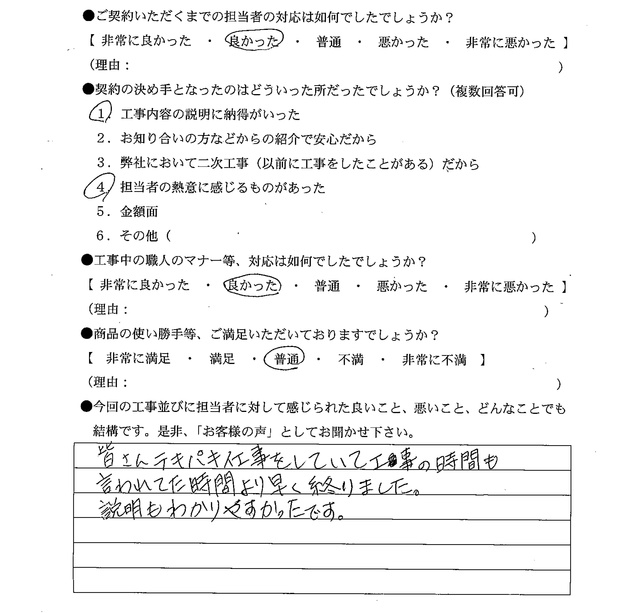 ●ご契約いただくまでの担当者の対応は如何でしたでしょうか？
【 非常に良かった ・ 良かった ・ 普通 ・ 悪かった ・ 非常に悪かった 】
（理由： ）
●契約の決め手となったのはどういった所だったでしょうか？（複数回答可）
1．工事内容の説明に納得がいった
2．お知り合いの方などからの紹介で安心だから
3．弊社において二次工事（以前に工事をしたことがある）だから
4．担当者の熱意に感じるものがあった
5．金額面
6．その他（ ）
●工事中の職人のマナー等、対応は如何でしたでしょうか？
【 非常に良かった ・ 良かった ・ 普通 ・ 悪かった ・ 非常に悪かった 】
（理由： ）
●商品の使い勝手等、ご満足いただいておりますでしょうか？
【 非常に満足 ・ 満足 ・ 普通 ・ 不満 ・ 非常に不満 】
（理由： ）
●今回の工事並びに担当者に対して感じられた良いこと、悪いこと、どんなことでも
結構です。是非、「お客様の声」としてお聞かせ下さい。
皆さんテキパキ仕事をしていて工事の時間も
言われてた時間より早く終りました。
説明もわかりやすかったです。